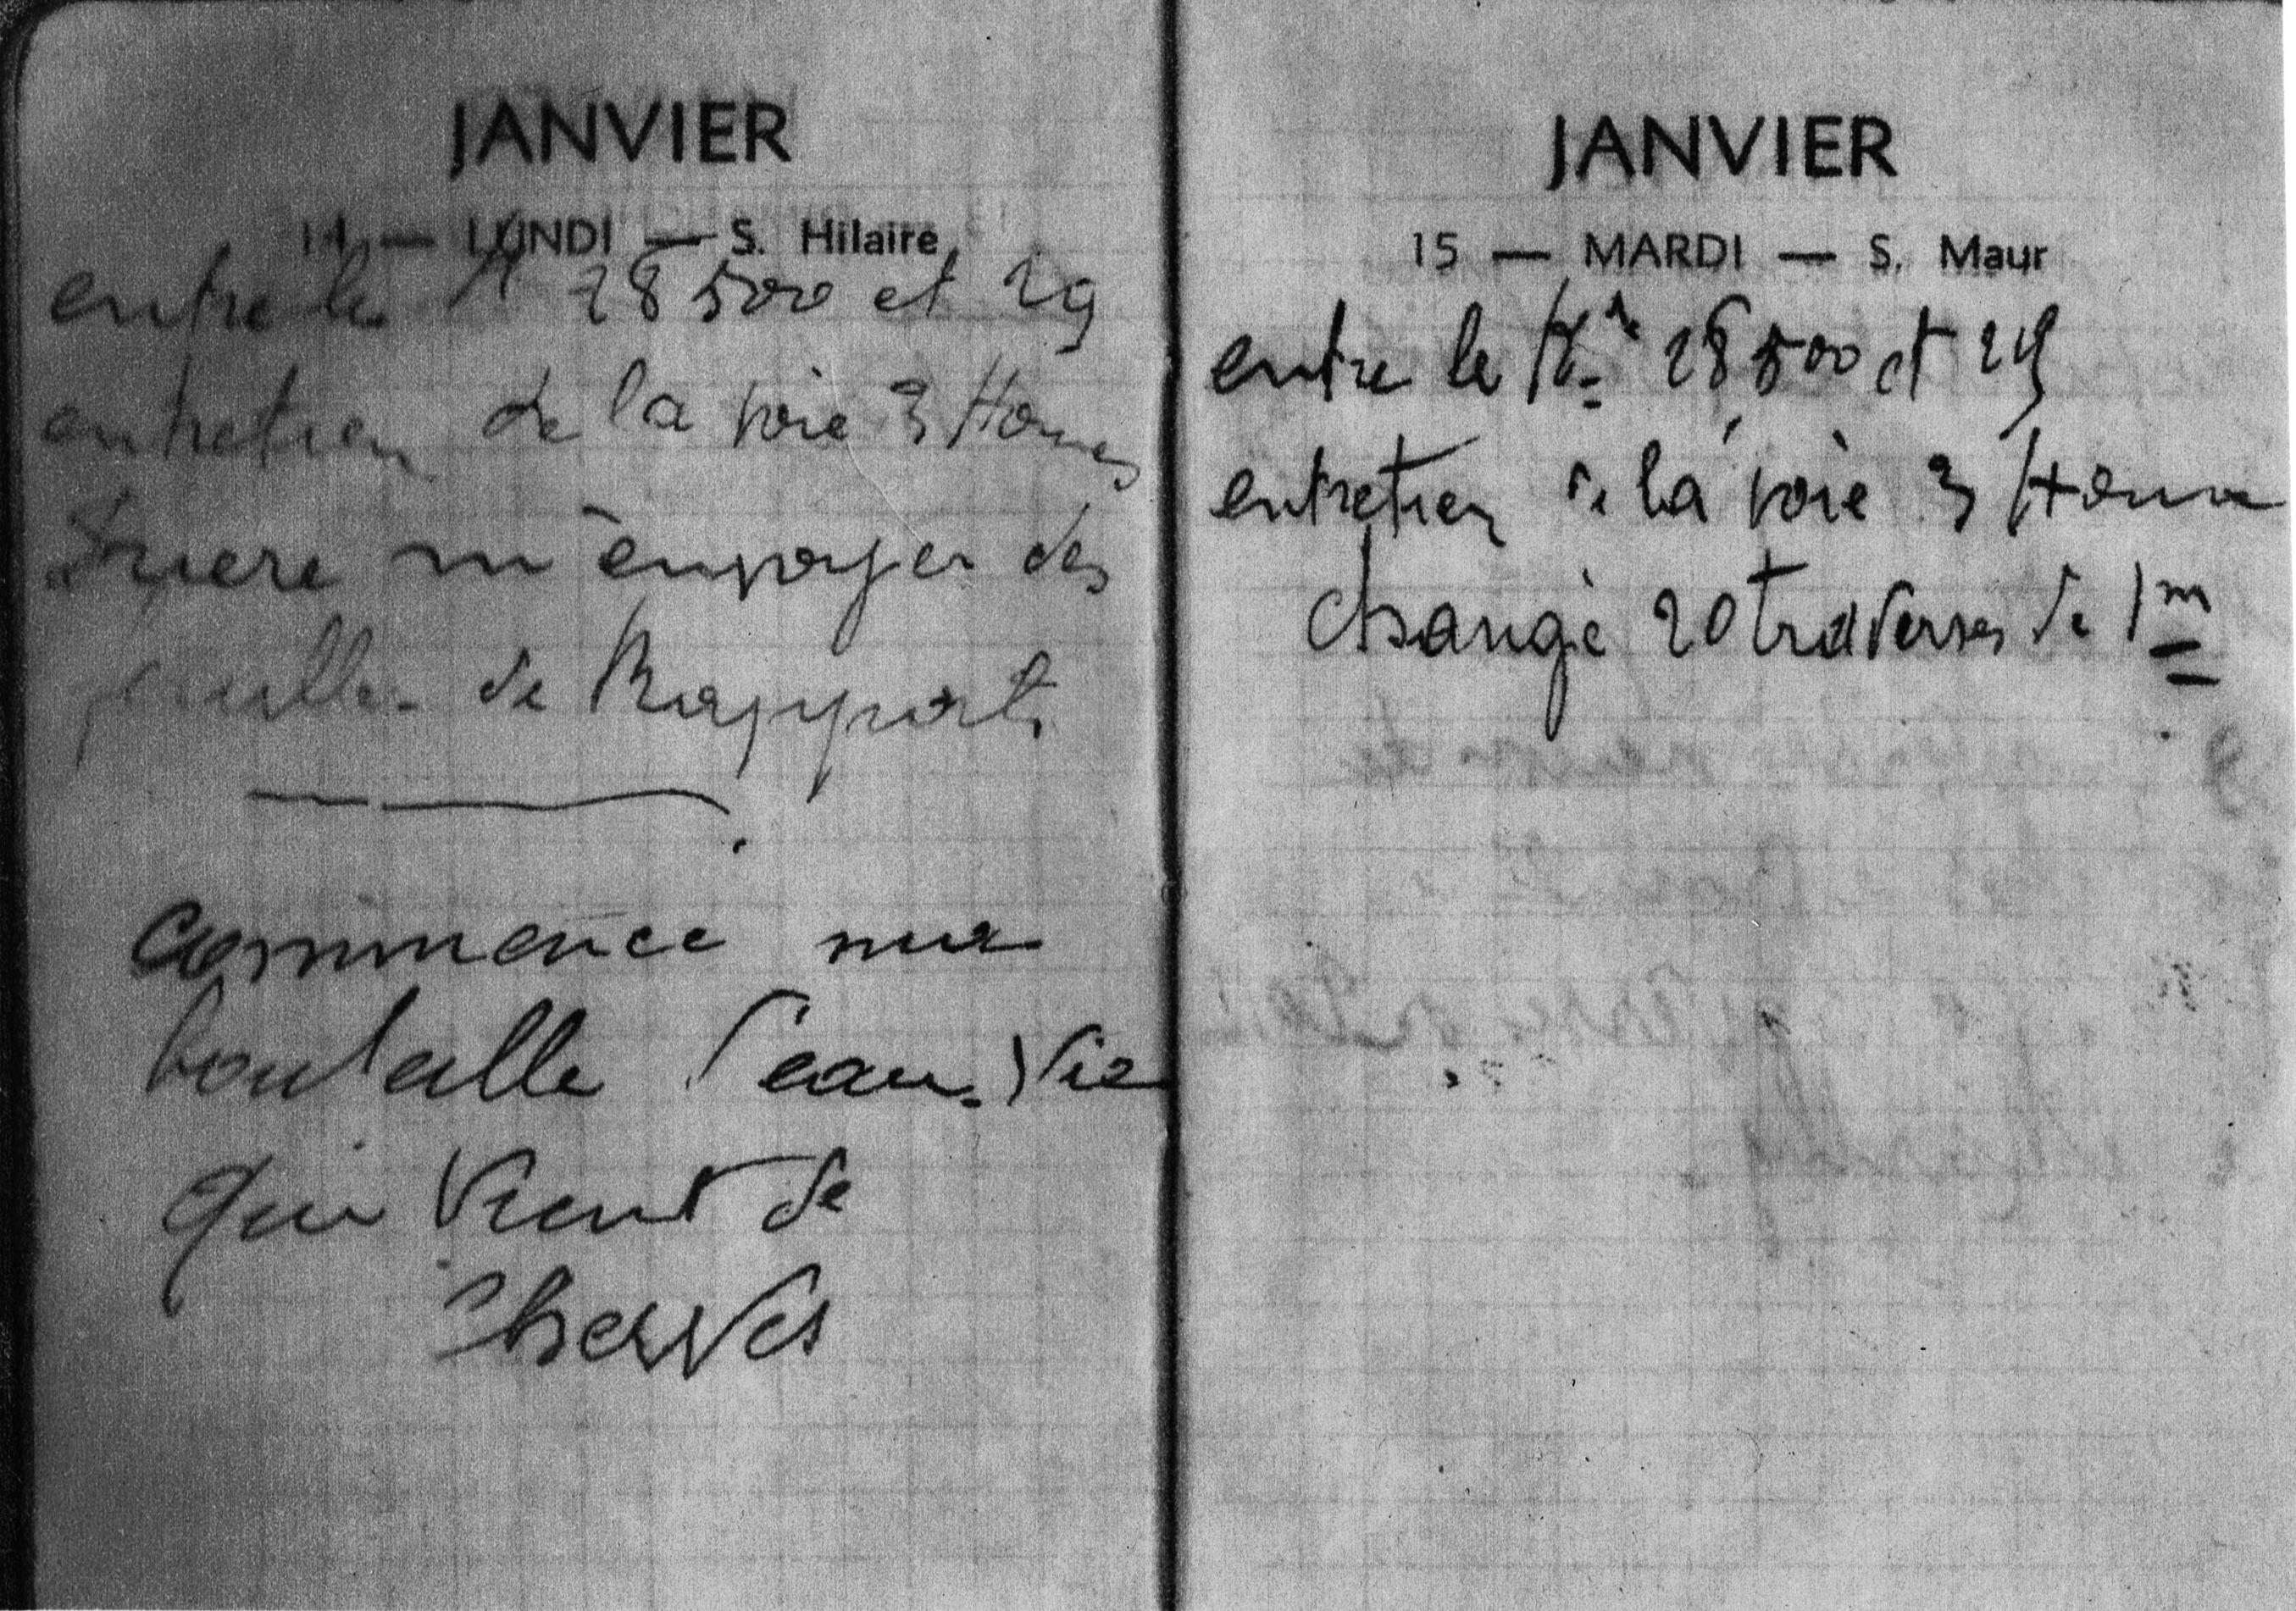 JANVIER
14 — LUNDI — S. Hilaire
entre le K 28 500 et 29
entretien de la voie 3 Homes
Prière m'envoyer des
feuilles de Rapports
commencé une
bouteille d'eau-vie
qui vient de
Cherves
JANVIER
15 — MARDI — S. Maur
entre le K 28,500 et 29
entretien de la voie 3 Home
changé 20 traverses de 1m